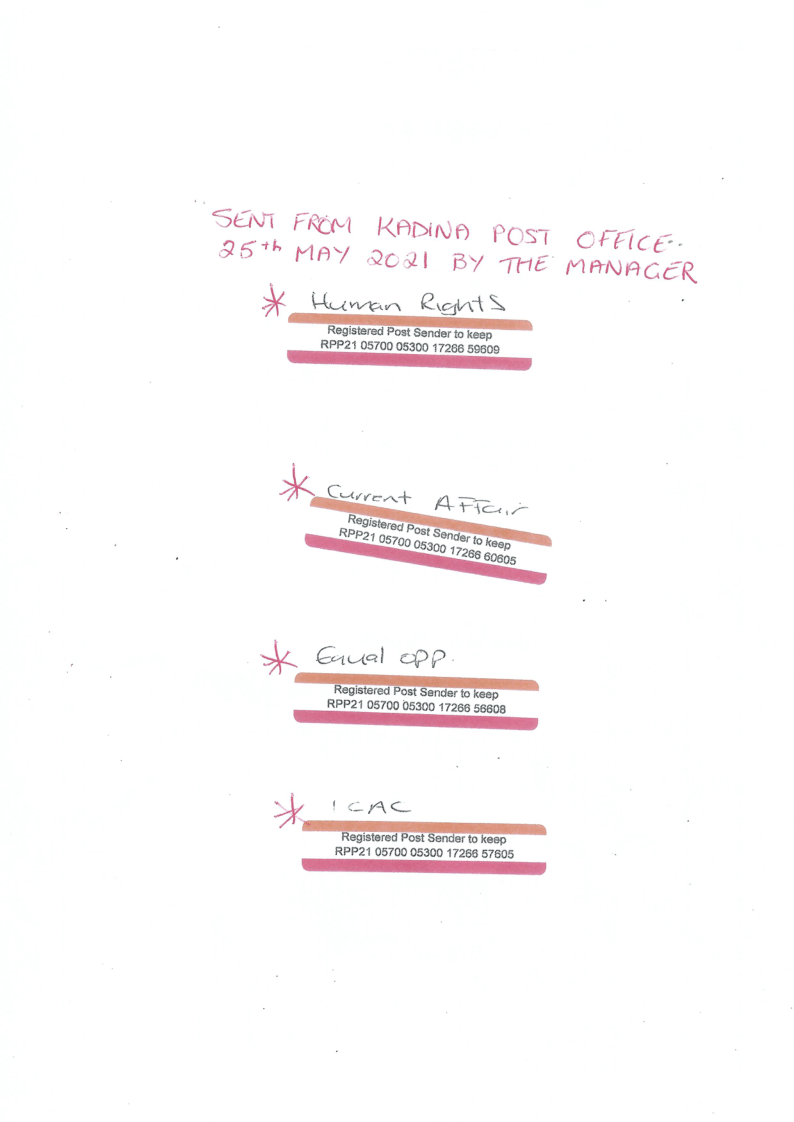 SENT FROM KADINA POST OFFICE..
25th MAY 2021 BY THE MANAGER
* Human Rights
Registered Post Sender to keep
RPP21 05700 05300 17266 59609
* Current Affair
Registered Post Sender to keep
RPP21 05700 05300 17266 60605
* Equal OPP.
Registered Post Sender to keep
RPP21 05700 05300 17266 56608
* ICAC
Registered Post Sender to keep
RPP21 05700 05300 17266 57605